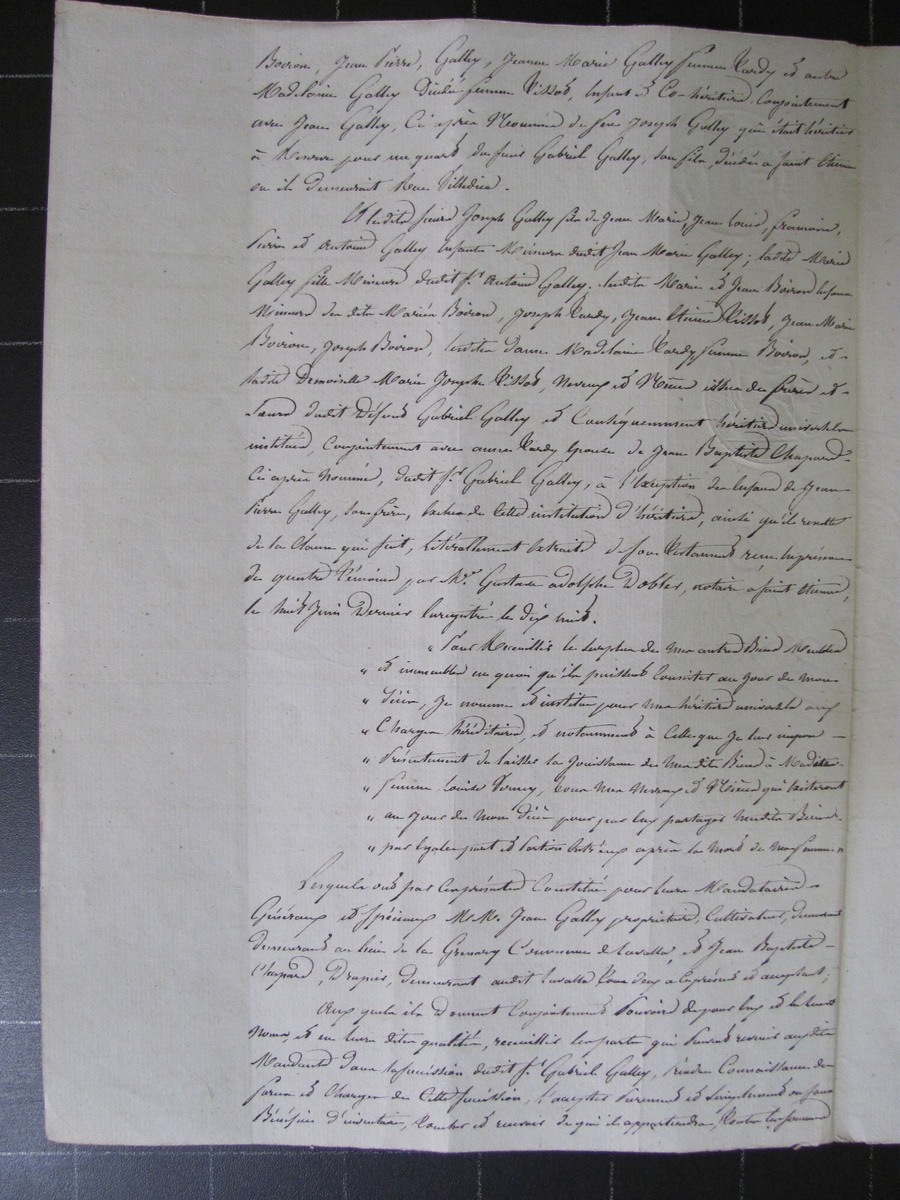 Boiron, Jean Pierre, Galley, Jeanne Marie Galley femme Tardy et autre
Madelaine Galley Décédé femme Tissot, Enfant et Co-héritiers Conjointement
avec Jean Galley, Ci après Nommé de feu Joseph Galley qui était héritier
à Réserve pour un quart du feu Gabriel Galley, son fils, décédé a Saint Etienne
ou il demeurait Rue Villedieu.
Et ledit sieur Joseph Galley fils de Jean Marie, Jean Louis, François,
Pierre et Antoine Galley Enfants Mineurs dudit Jean Marie Galley; ladite Marie
Galley fille Mineure dudit Sr. Antoine Galley. lesdits Marie et Jean Boiron Enfans
Mineurs desdits Mariés Boiron, Joseph Tardy, Jean Etienne Tissot, Jean Marie
Boiron, Joseph Boiron, lesdites dame Madelaine Tardy femme Boiron, et
ladite Demoiselle Marie Josephe Tissot, Neveux et Nièces issus des frères et
Sœurs dudit Défunt Gabriel Galley et Conséquemment héritiers universels
institués, Conjointement avec anne Tardy épouse de Jean Baptiste Chapard
Ci après Nommé, dudit Sr. Gabriel Galley, à l'Exception des Enfans de Jean
Pierre Galley, son frère, exclus de Cette institution d'héritiers, ainsi qu'il résulte
de la Clause qui suit, littéralement Extraite de son Testament reçu En présence
de quatre témoins par Me. Gustave adolphe Dobler, notaire a Saint Etienne,
le huit Juin Dernier Enregistré le dix huit.
" Pour Recueillir le surplus de Mes autres Biens Meubles
" et immeubles en quoi qu'ils puissent Consister au jour de mon
" décès, Je nomme et institue pour Mes héritiers universels aux
" Charges héréditaires, et notamment à Celle que Je leur impose
" Présentement de laisser la Jouissance de Mesdits Biens à Madite
" femme Louise, tous Mes Neveux et Nièces qui existeront
" au Jour de Mon décès pour par Eux partager Mesdits Biens
" par Egales part et Portion Entr'eux après la Mort de Ma femme "
Lesquels ont par Ces présentes Constitué pour leurs Mandataires
Généraux et Spéciaux MM. Jean Galley propriétaire, Cultivateur, demeurant
demeurant au lieu de la Commune de Lavalla, et Jean Baptiste
Chapard, Drapier, demeurant audit Lavalla tous deux à Ce présent et acceptant;
Aux quels ils Donnent Conjointement Pouvoir de pour Eux et En leurs
Noms, et en leurs dites qualités, recueillir les parts qui peuvent revenir auxdits
Mandants dans la succession dudit Sr. Gabriel Galley, Prendre Connaissance des
forces et Charges de Cette succession, l'accepter Purement et Simplement ou sous
Bénéfice d'inventaire, toucher et recevoir de qui il appartiendra, toutes les sommes